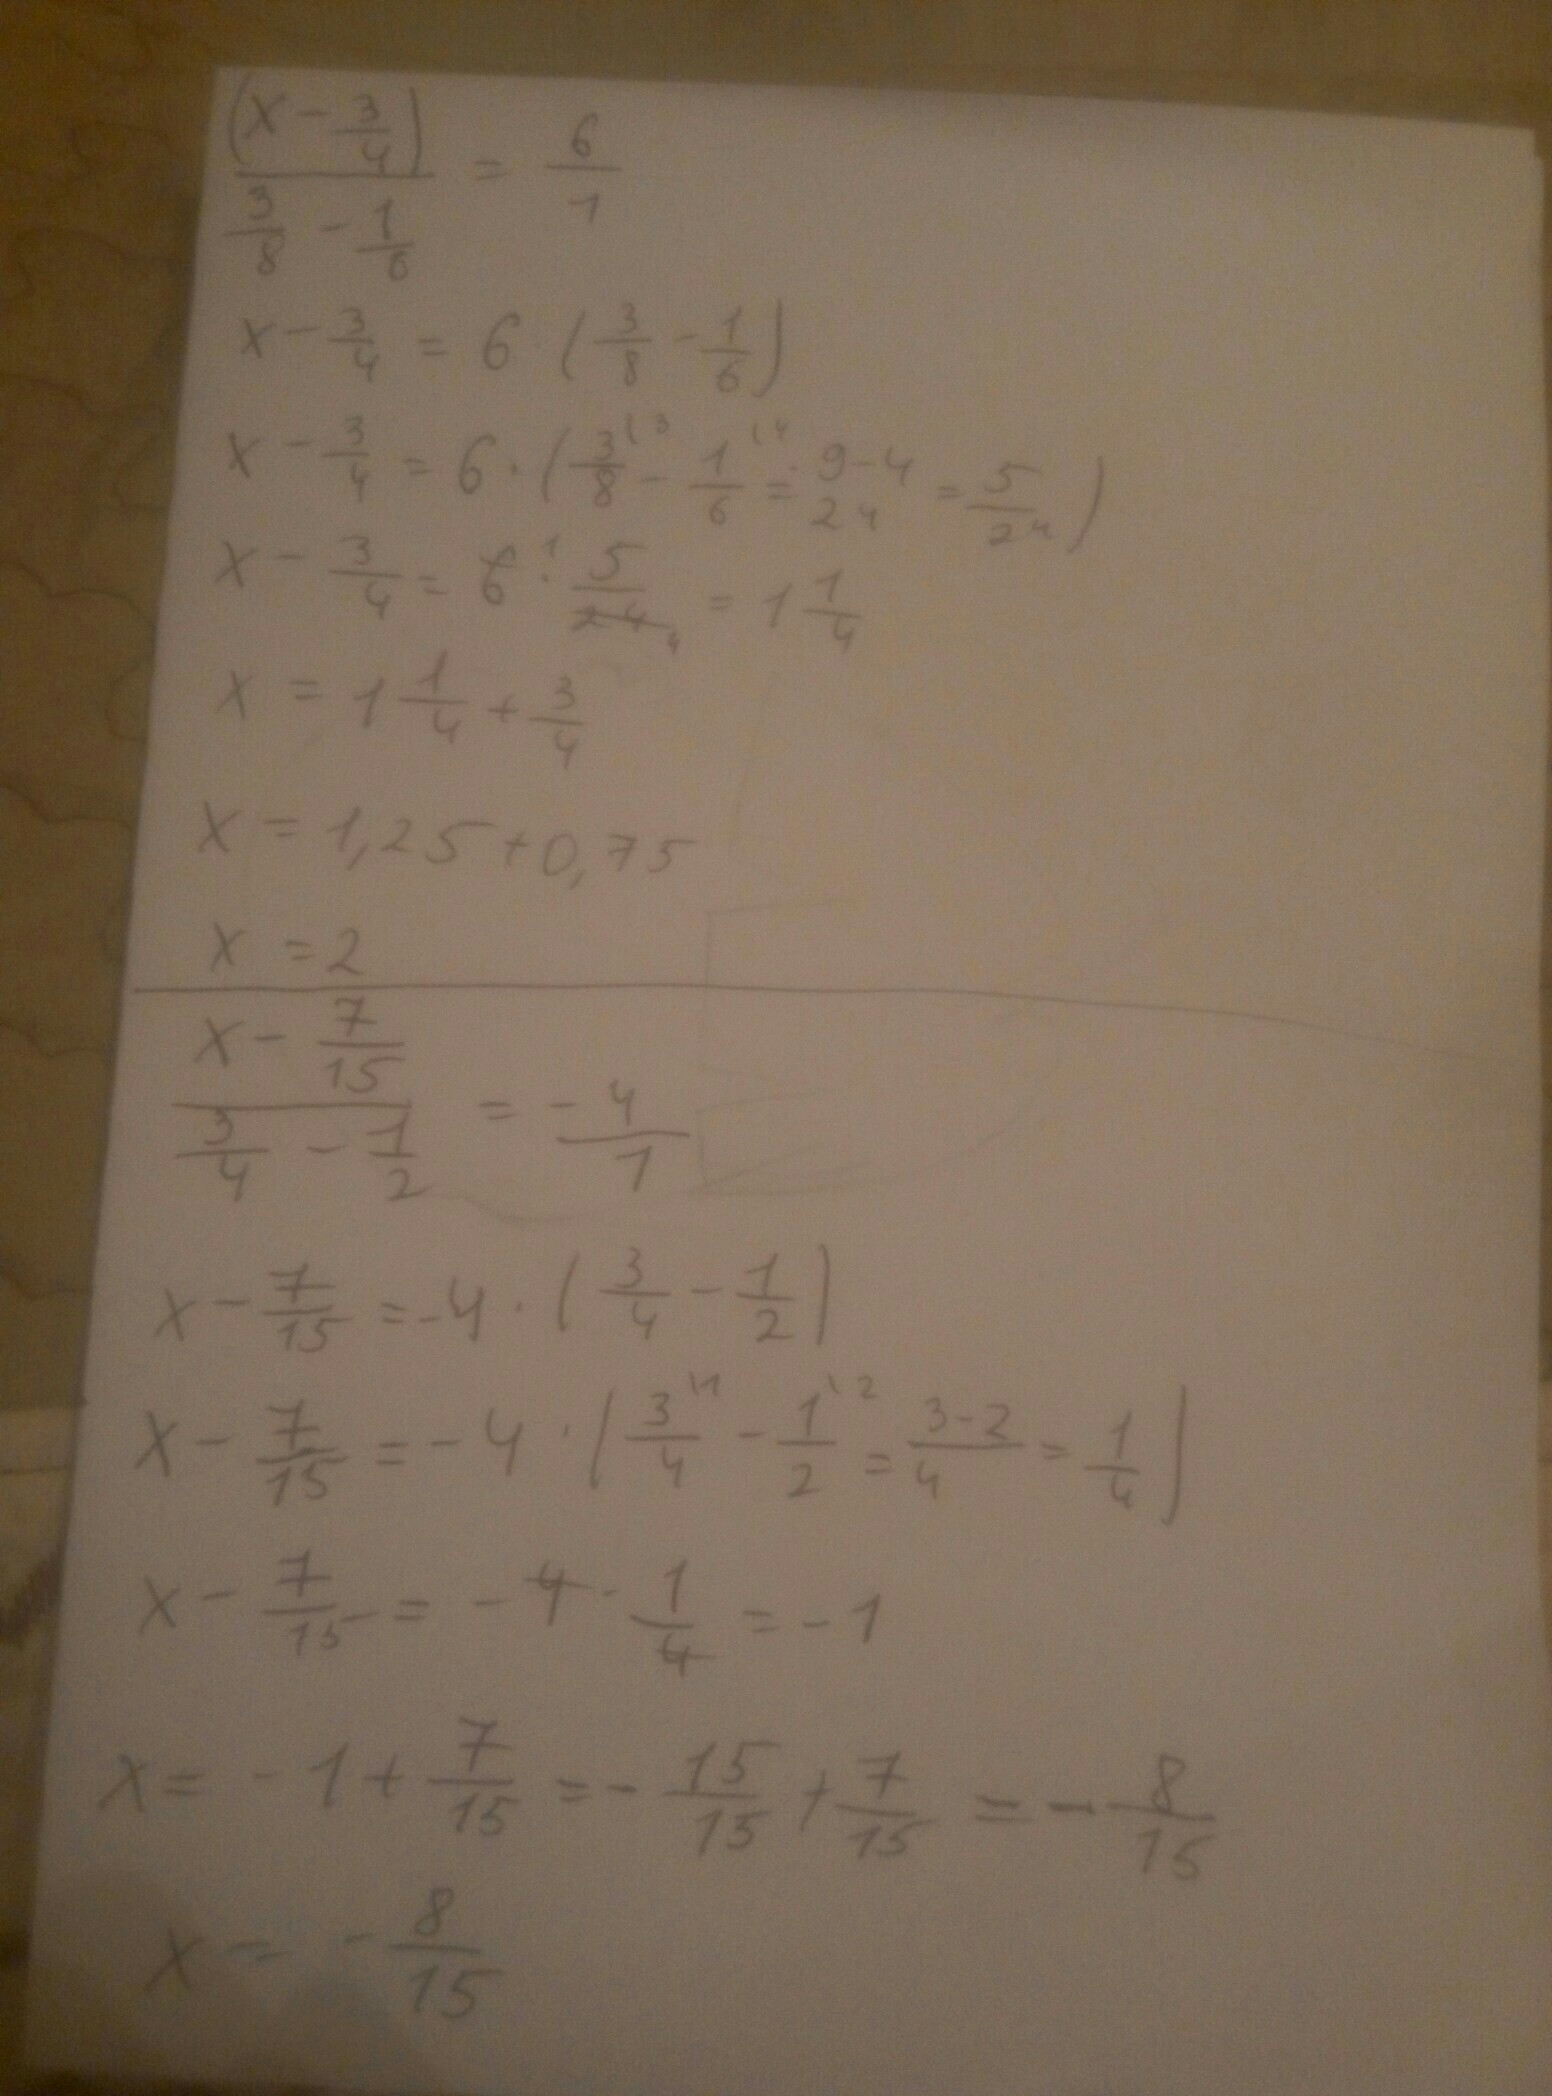 (x - 3/4) / (3/8 - 1/6) = 6/1
x - 3/4 = 6 · (3/8 - 1/6)
x - 3/4 = 6 · (3/8 \3 - 1/6 \4 = 9-4 / 24 = 5/24)
x - 3/4 = 6 1 · 5/24 4 = 1 1/4
x = 1 1/4 + 3/4
x = 1,25 + 0,75
x = 2
(x - 7/15) / (3/4 - 1/2) = -4/1
x - 7/15 = -4 · (3/4 - 1/2)
x - 7/15 = -4 · (3/4 \1 - 1/2 \2 = 3-2 / 4 = 1/4)
x - 7/15 = -4 · 1/4 = -1
x = -1 + 7/15 = -15/15 + 7/15 = -8/15
x = -8/15